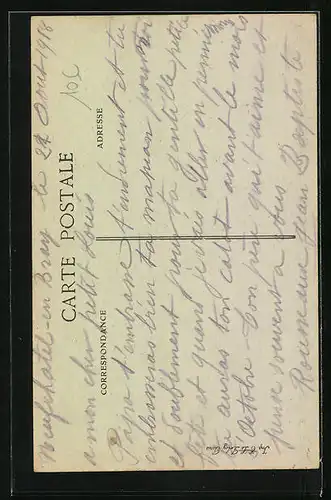 Neufchatel-en Bray le 22 Aout 1918
10c
CARTE POSTALE
CORRESPONDANCE
ADRESSE
a mon cher petit Louis
Papa t'embrasse tendrement et tu
embrasseras bien ta maman pour moi
et doublement pour ta gentille petite
et quand je vais aller en permission
tu auras ton avant le mois
Octobre - Ton père qui t'aime et
pense souvent a vous
Rousseau Jean Baptiste